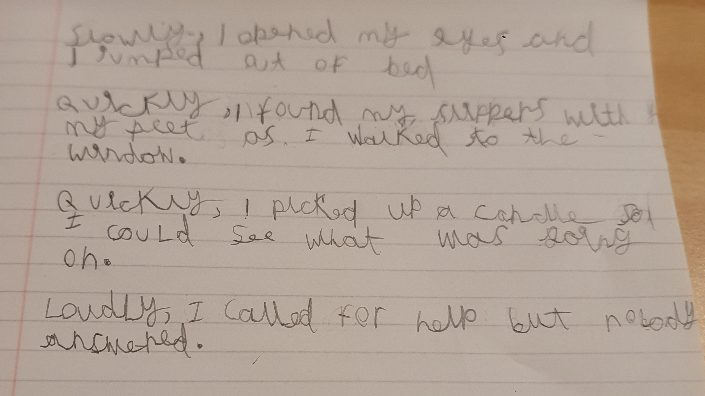 Slowly, I opened my eyes and
I jumped out of bed
Quickly, I found my slippers with
my feet as I walked to the
window.
Quickly, I picked up a candle so
I could see what was going
on.
Loudly, I called for help but nobody
answered.